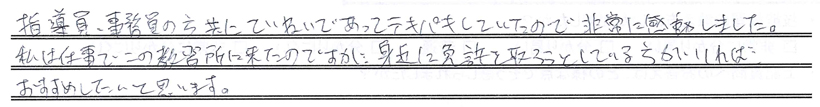 指導員、事務員の方共にていねいであってテキパキしていたので非常に感動しました。
私は仕事でこの教習所に来たのですが、身近に免許を取ろうとしている方がいれば、
おすすめしたいと思います。